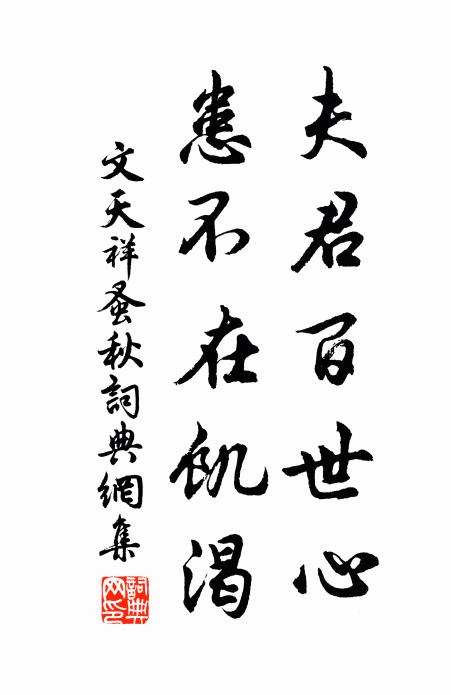 夫君百世心
患不在飢渴
文天祥蚤秋詞典網集
詞典網印